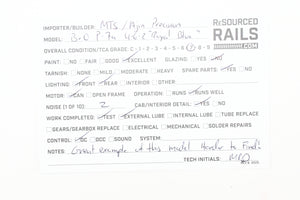 IMPORTER/BUILDER: MTS / Ajin Precision
RESOURCED
RAILS
.COM
MODEL B-O P-7a 4-6-2 "Royal Blue"
OVERALL CONDITION/TCA GRADE C: 1 - 2 - 3 - 4 - 5 - 6 - 7 - 8 - 9
PAINT: NO FAIR GOOD EXCELLENT GLAZING YES NO
TARNISH: NONE MILD MODERATE HEAVY SPARE PARTS YES NO
LIGHTING: FRONT REAR INTERIOR OTHER
MOTOR CAN OPEN FRAME OPERATION: RUNS WELL RUNS
NOISE (1 OF 10) 2 CAB/INTERIOR DETAIL: YES NO
WORK COMPLETED TEST EXTERNAL LUBE INTERNAL LUBE TUBE REPLACE
GEARS/GEARBOX REPLACE ELECTRICAL MECHANICAL SOLDER REPAIRS
CONTROL: DC DCC SOUND SYSTEM
NOTES Great example of this model. Harder to Find!
TECH INITIALS: